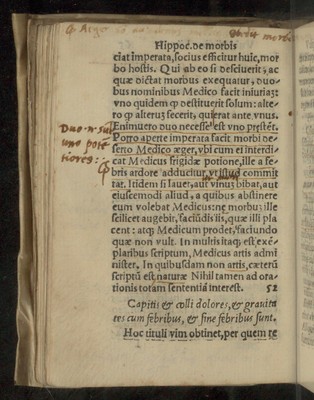 Hippoc. de morbis
ciāt imperata, socius efficitur huic, mor
bo hostis. Qui ab eo si desciuerit, ac
quæ dictat morbus exequatur, duo-
bus nominibus Medico facit iniuriā:
vno quidem ꝙ destituerit solum: alte-
ro ꝙ alterū fecerit, qui erat ante, vnus.
Enimuero duo necesse est vno prestēt.
Porro aperte imperata facit morbi de
serto Medico æger, vbi cum ei interdi-
cat Medicus frigidæ potione, ille a fe-
bris ardore adducitur, vt istud commit
tat. Itidem si lauet, aut vinum bibat, aut
eiuscemodi aliud, a quibus abstinere
eum volebat Medicus: ne morbū: ille
scilicet augebit, faciūdis iis, quæ illi pla
cent: atq; Medicum prodet, faciundo
quæ non vult. In multis itaq; est exē-
plaribus scriptum, Medicus artis admi
nister. In quibusdam non artis, cæterū
scriptū est, naturæ. Nihil tamen ad ora
tionis totam sententiā interest. 52
Capitis & colli dolores, & grauita
tes cum febribus, & sine febribus sunt.
Hoc tituli vim obtinet, per quem re
Duo n̄ sūt
uno pote
tiores: